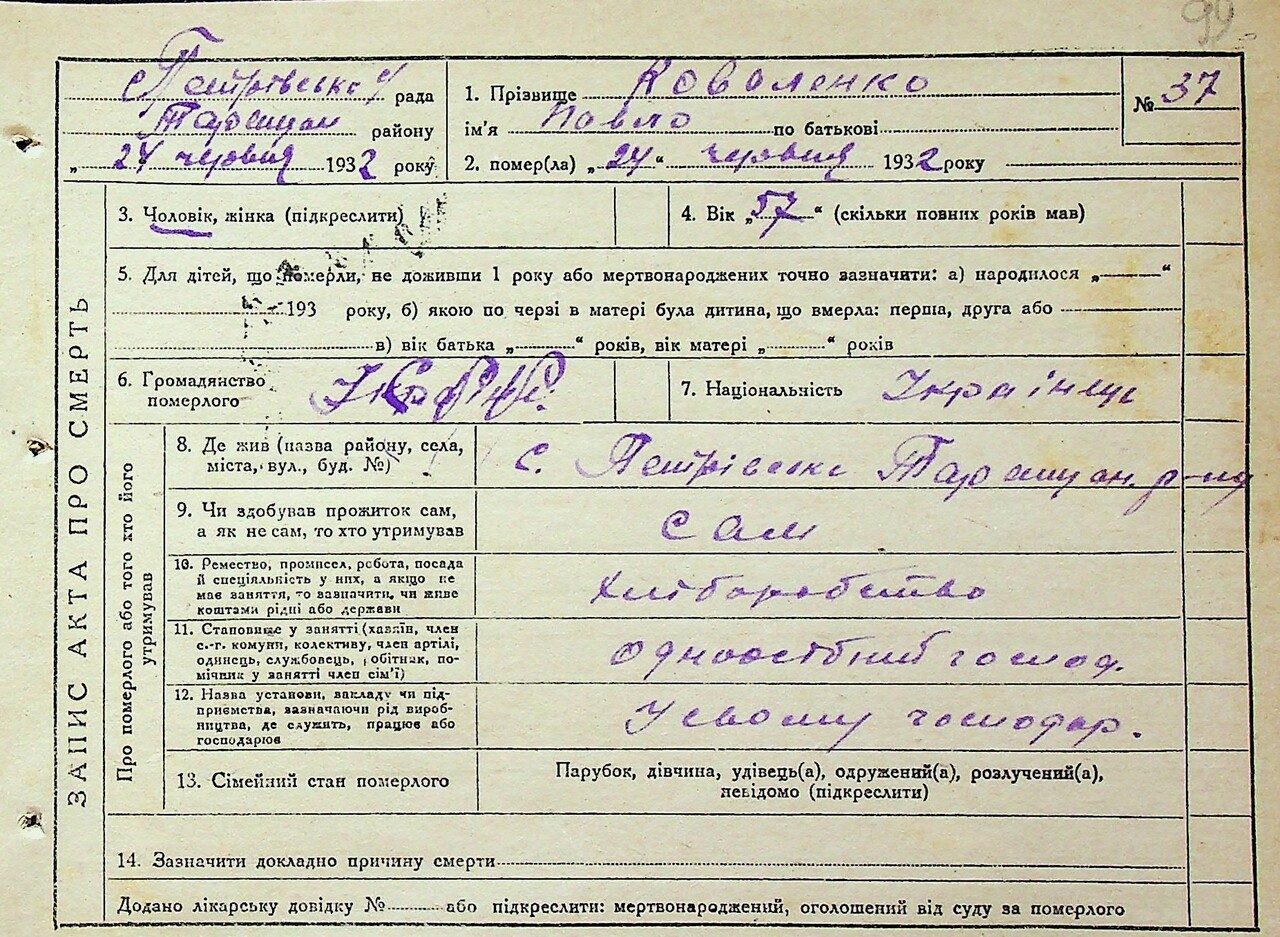 99
с Петрівська с/ рада
Таращан району
„ 24 червня 1932 року
1. Прізвище Коваленко
ім'я Павло по батькові
2. помер(ла) „ 24 “ червня 1932 року
№ 37
ЗАПИС АКТА ПРО СМЕРТЬ
3. Чоловік, жінка (підкреслити)
4. Вік „ 57 “ (скільки повних років мав)
5. Для дітей, що померли, не доживши 1 року або мертвонароджених точно зазначити: а) народилося „ “
193 року, б) якою по черзі в матері була дитина, що вмерла: перша, друга або
в) вік батька „ “ років, вік матері „ “ років
6. Громадянство
померлого
7. Національність Українец
Про померлого або того хто його
утримував
8. Де жив (назва району, села,
міста, вул., буд. №)
с. Петрівська Таращан. р-ну
9. Чи здобував прожиток сам,
а як не сам, то хто утримував
сам
10. Ремество, промисел, робота, посада
й спеціяльність у них, а якщо не
має заняття, то зазначити, чи живе
коштами рідні або держави
Хліборобство
11. Становище у занятті (хазяїн, член
с.-г. комуни, колективу, член артілі,
одинець, службовець, робітник, по-
мічник у занятті член сім'ї)
одноосібний господ.
12. Назва установи, закладу чи під-
приємства, зазначаючи рід вироб-
ництва, де служить, працює або
господарює
У своому господар.
13. Сімейний стан померлого
Парубок, дівчина, удівець(а), одружений(а), розлучений(а),
невідомо (підкреслити)
14. Зазначити докладно причину смерти
Додано лікарську довідку № або підкреслити: мертвонароджений, оголошений від суду за померлого